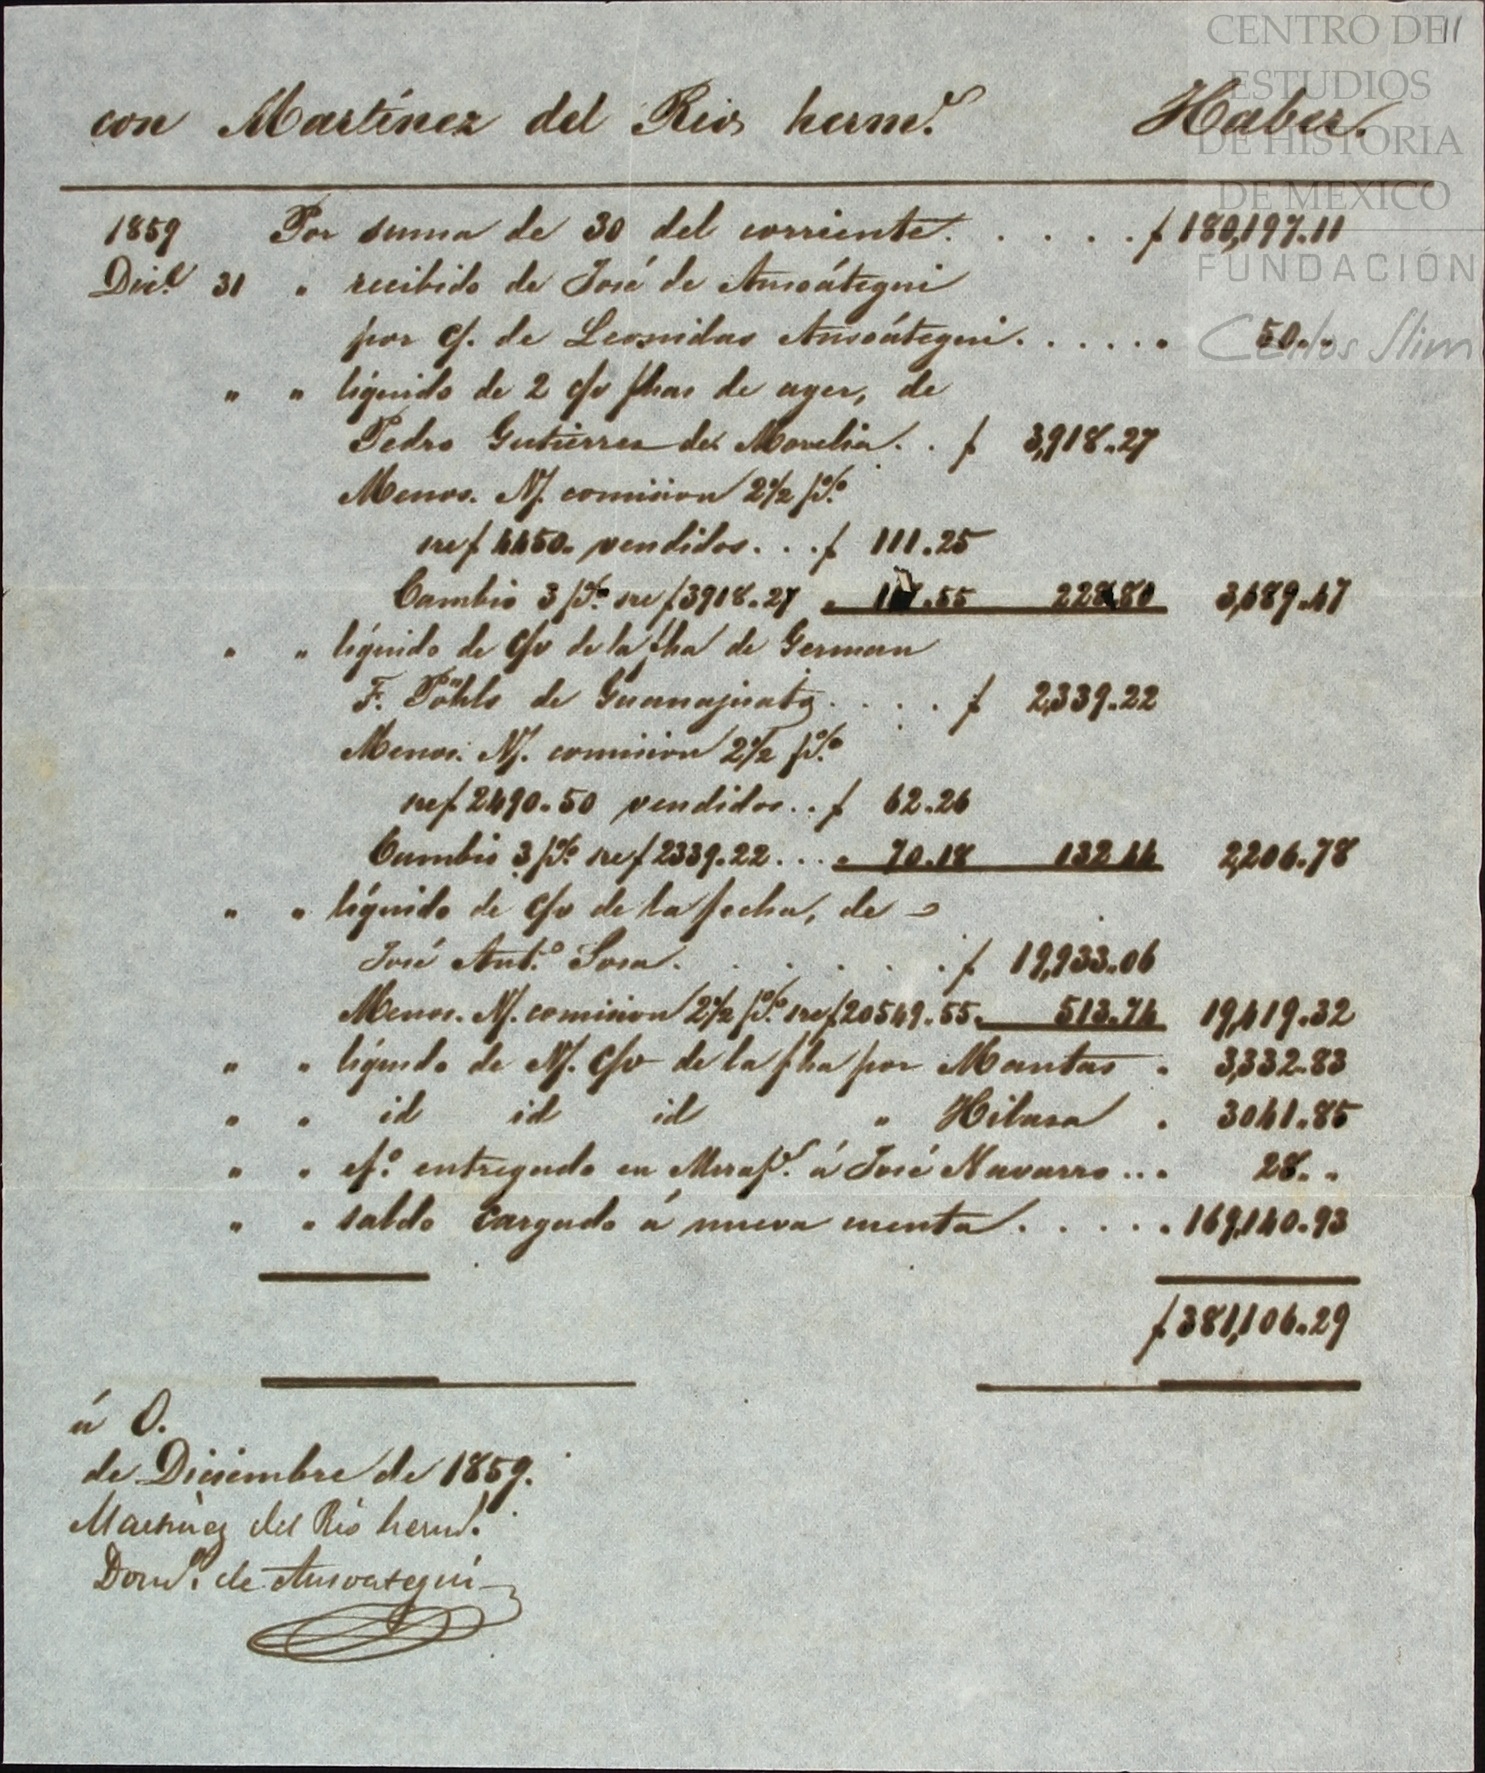 CENTRO DE
ESTUDIOS
DE HISTORIA
DE MEXICO
FUNDACIÓN
Carlos Slim
11
con Martínez del Rio herm.ˢ Haber.
1859 Por suma de 30 del corriente. . . . . . $ 180,197.11
Dic.ᵉ 31 " recibido de José de Ansoátegui
por c/. de Leonidas Ansoátegui. . . . . " 50. "
" " líquido de 2 c/v fhas de ayer, de
Pedro Gutierrez de Morelia. . $ 3,918.27
Menos. N/. comision 2½ p.%
sre $ 4450. vendidos. . . $ 111.25
Cambio 3 p.% sre $ 3918.27 " 117.55 228.80 3,689.47
" " líquido de c/v de la fha de German
F. Pöhls de Guanajuato. . . . $ 2,339.22
Menos. N/. comision 2½ p.%
sre $ 2490.50 vendidos. . $ 62.26
Cambio 3 p.% sre $ 2339.22. . . " 70.18 132.44 2,206.78
" " líquido de c/v de la fecha, de
José Ant.º Sosa. . . . . . $ 19,933.06
Menos. N/. comision 2½ p.% sre $ 20549.55. 513.74 19,419.32
" " líquido de N/. c/v de la fha por Mantas " 3,332.83
" " id id id " Hilaza " 3041.85
" " ef.º entregado en á José Navarro. . " 28. "
" " saldo cargado á nueva cuenta. . . . . " 169,140.93
$ 381,106.29
á O.
de Diciembre de 1859.
Martínez del Rio herm.ˢ
Dom.º de Ansoategui